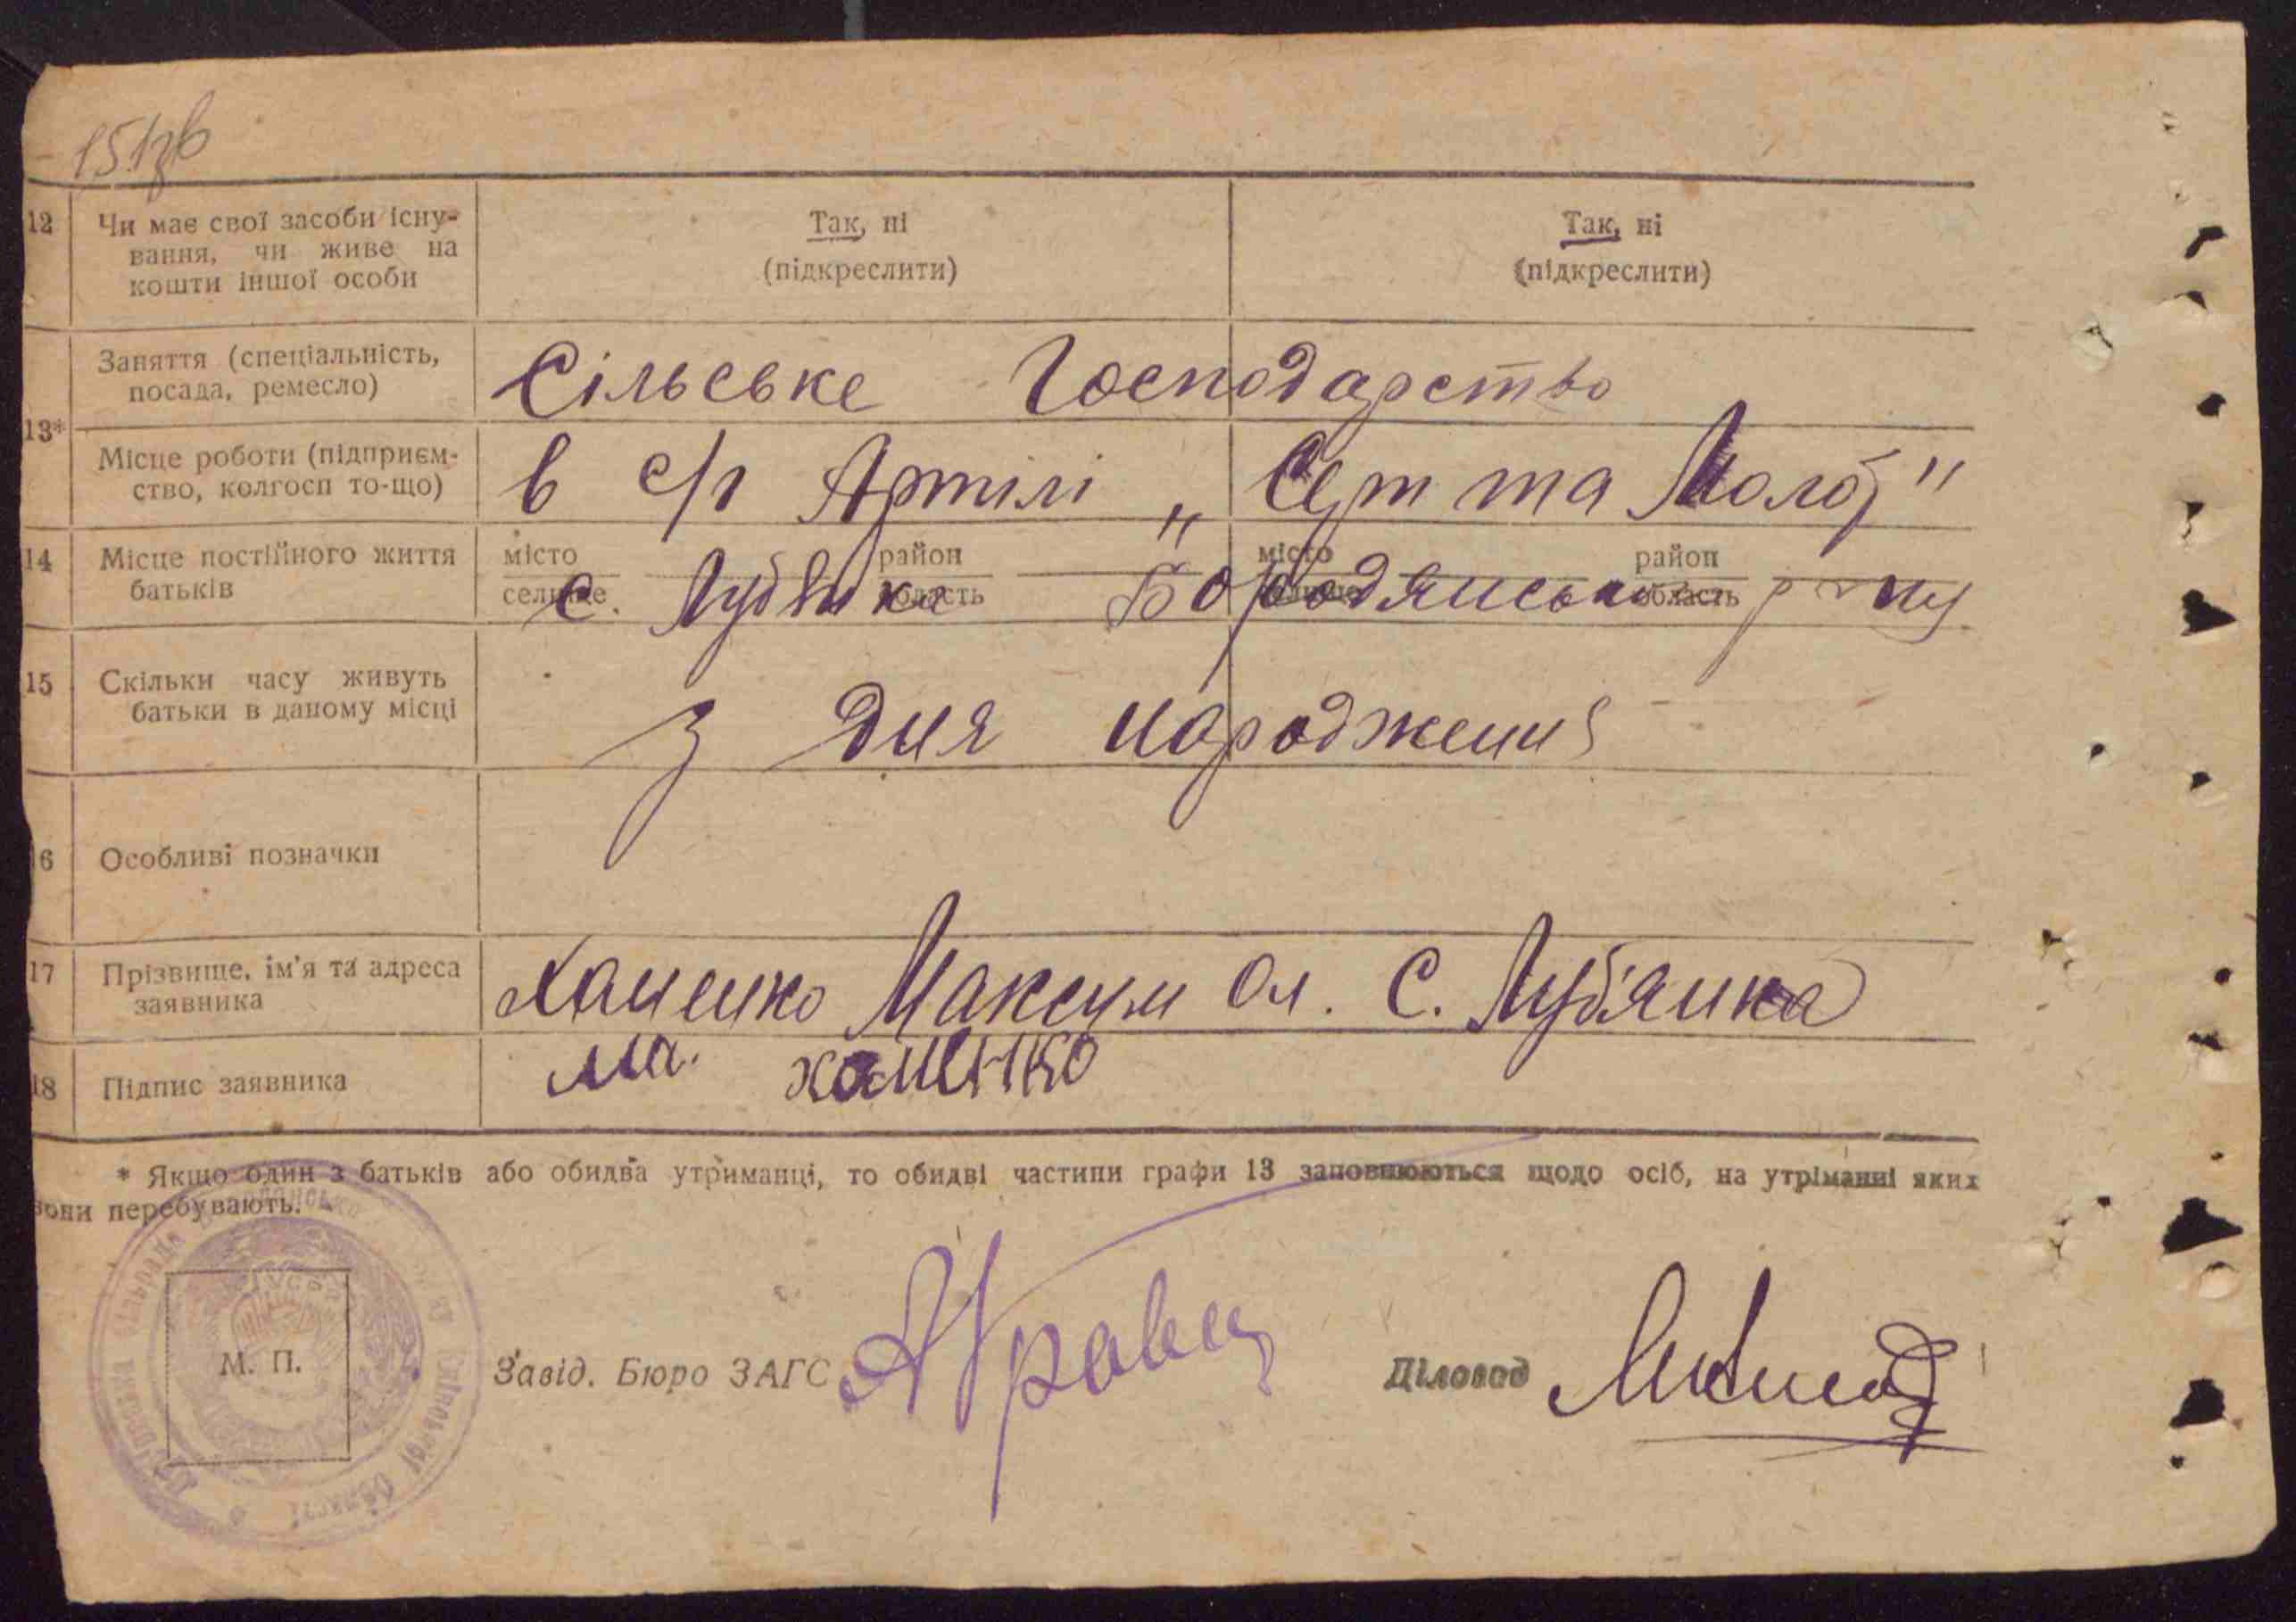 12 Чи має свої засоби існу-
вання, чи живе на
кошти іншої особи
Так, ні
(підкреслити)
Так, ні
(підкреслити)
13*
Заняття (спеціальність,
посада, ремесло)
Сільське Господарство
Місце роботи (підприєм-
ство, колгосп то-що)
в с/г Артілі „Серп та Молот"
14 Місце постійного життя
батьків
місто район місто район
селище область селище область
с. Лубянка Бородянського р-ну
15 Скільки часу живуть
батьки в даному місці
з дня народження
6 Особливі позначки
17 Прізвище, ім'я та адреса
заявника
Ханенко Максим Ол. С. Луб'янка
18 Підпис заявника
Ма. ханенко
* Якщо один з батьків або обидва утриманці, то обидві частини графи 13 заповнюються щодо осіб, на утріманні яких
вони перебувають.
М. П.
Завід. Бюро ЗАГС
Діловод